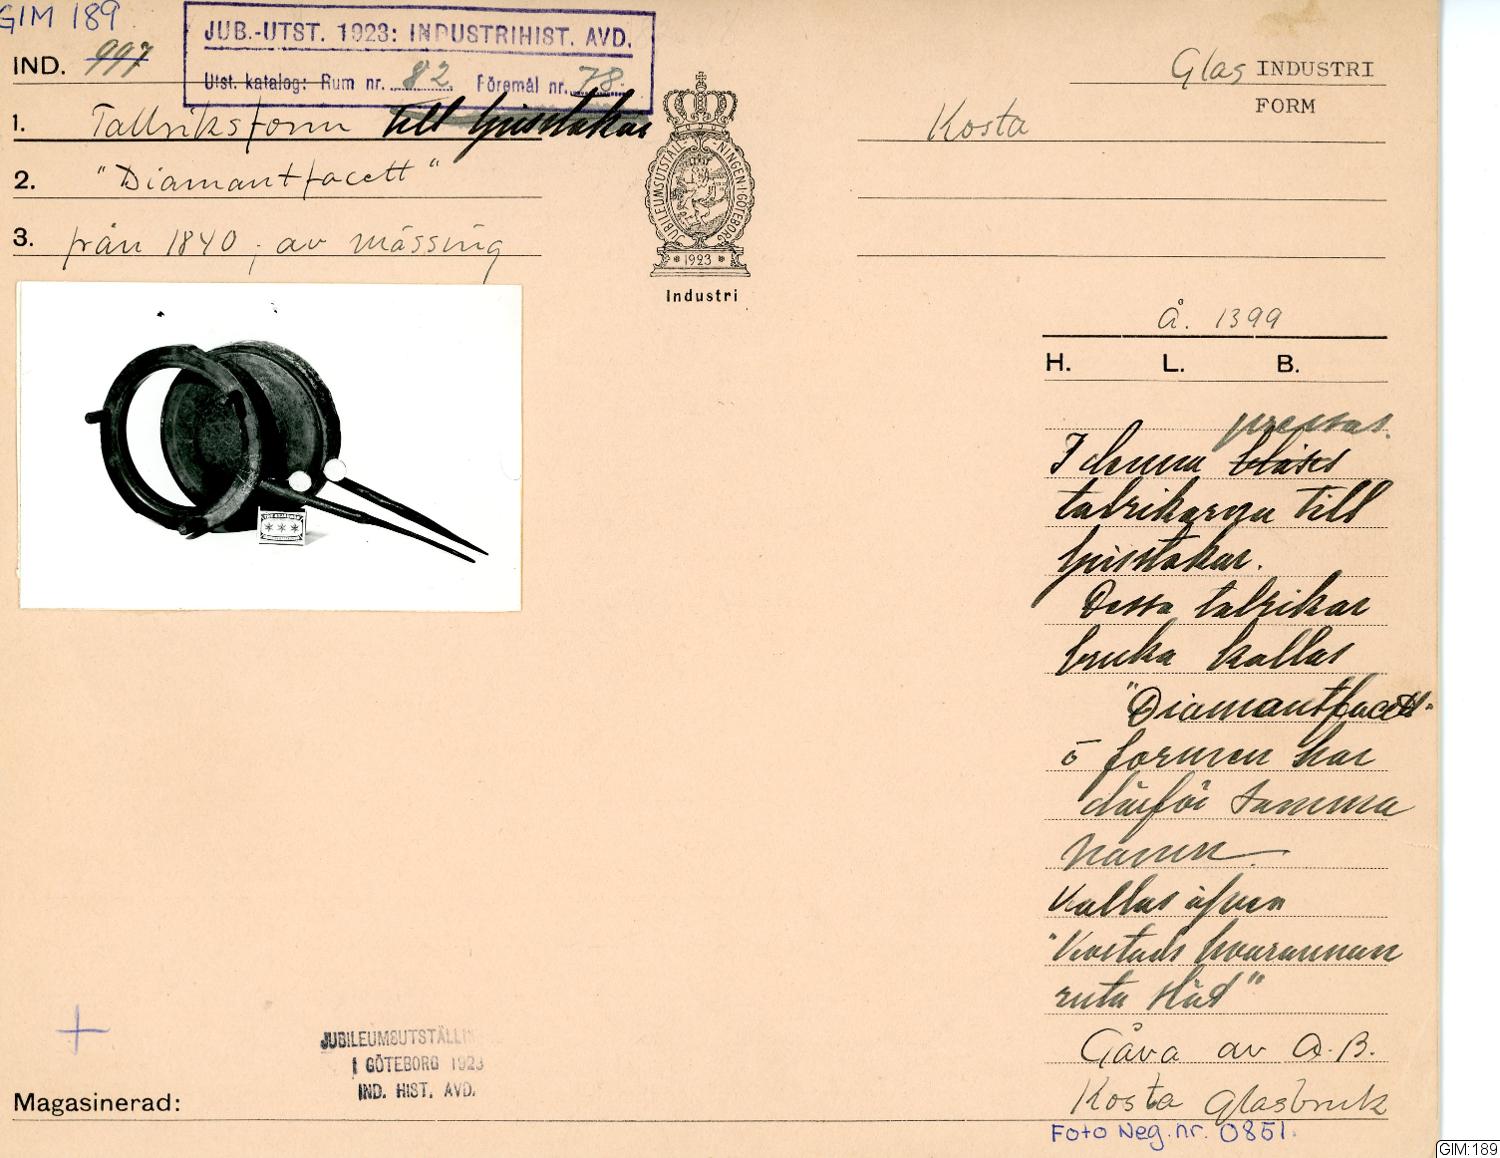 GIM 189
JUB.-UTST. 1923: INDUSTRIHIST. AVD.
IND. 997
Utst. katalog: Rum nr. 82. Föremål nr. 78.
Glas INDUSTRI
FORM
1. Tallriksform till ljusstakar
Kosta
2. "Diamantfacett"
3. från 1840, av mässing
JUBILEUMSUTSTÄLLNINGEN I GÖTEBORG
1923
Industri
Å. 1399
H. L. B.
pressas.
I denna blåses
talrikarna till
ljusstakar.
Dessa talrikar
bruka kallas
"Diamantfacett"
o formen har
därför samma
namn.
Kallas äfven
"Kostads hvarannan
ruta slät"
Gåva av A.B.
Kosta Glasbruk
JUBILEUMSUTSTÄLLN
I GÖTEBORG 1923
IND. HIST. AVD.
Magasinerad:
Foto Neg.nr. 0851.
GIM:189